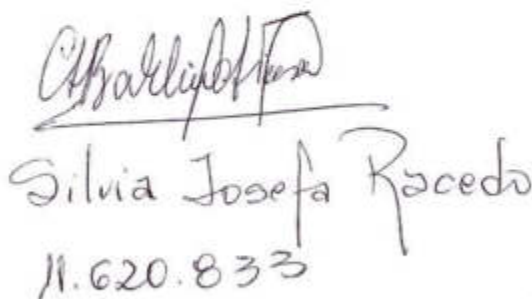 Silvia Josefa Racedo
11.620.833